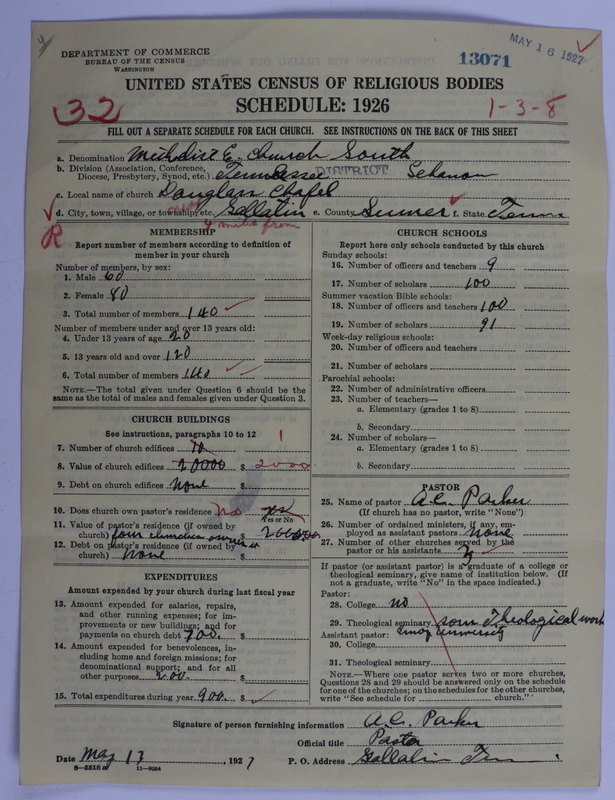 DEPARTMENT OF COMMERCE
BUREAU OF THE CENSUS
WASHINGTON
13071
MAY 16 1927
UNITED STATES CENSUS OF RELIGIOUS BODIES
SCHEDULE: 1926
32
1-3-8
FILL OUT A SEPARATE SCHEDULE FOR EACH CHURCH. SEE INSTRUCTIONS ON THE BACK OF THIS SHEET
a. Denomination Methodist E. Church South
b. Division (Association, Conference, Diocese, Presbytery, Synod, etc.) Tennessee DISTRICT Lebanon
c. Local name of church Douglass Chapel
d. City, town, village, or township, etc. Gallatin e. County Sumner f. State Tenn
R
4 miles from
MEMBERSHIP
Report number of members according to definition of member in your church
Number of members, by sex:
1. Male 60
2. Female 80
3. Total number of members 140
Number of members under and over 13 years old:
4. Under 13 years of age 20
5. 13 years old and over 120
6. Total number of members 140
NOTE.—The total given under Question 6 should be the same as the total of males and females given under Question 3.
CHURCH BUILDINGS
See instructions, paragraphs 10 to 12
7. Number of church edifices 10 1
8. Value of church edifices 20000 $ 2000
9. Debt on church edifices none $
10. Does church own pastor's residence no yes
Yes or No
11. Value of pastor's residence (if owned by church) four churches own it $
12. Debt on pastor's residence (if owned by church) none $
EXPENDITURES
Amount expended by your church during last fiscal year
13. Amount expended for salaries, repairs, and other running expenses; for improvements or new buildings; and for payments on church debt 700. $
14. Amount expended for benevolences, including home and foreign missions; for denominational support; and for all other purposes 200. $
15. Total expenditures during year 900. $
CHURCH SCHOOLS
Report here only schools conducted by this church
Sunday schools:
16. Number of officers and teachers 9
17. Number of scholars 100
Summer vacation Bible schools:
18. Number of officers and teachers 100
19. Number of scholars 91
Week-day religious schools:
20. Number of officers and teachers
21. Number of scholars
Parochial schools:
22. Number of administrative officers
23. Number of teachers—
a. Elementary (grades 1 to 8)
b. Secondary
24. Number of scholars—
a. Elementary (grades 1 to 8)
b. Secondary
PASTOR
25. Name of pastor A.C. Parker
(If church has no pastor, write "None")
26. Number of ordained ministers, if any, employed as assistant pastors none
27. Number of other churches served by the pastor or his assistants
If pastor (or assistant pastor) is a graduate of a college or theological seminary, give name of institution below. (If not a graduate, write "No" in the space indicated.)
Pastor:
28. College no
29. Theological seminary som Theological work
Emory University
Assistant pastor:
30. College
31. Theological seminary
NOTE.—Where one pastor serves two or more churches, Questions 28 and 29 should be answered only on the schedule for one of the churches; on the schedules for the other churches, write "See schedule for church."
Signature of person furnishing information A.C. Parker
Official title Pastor
Date May 13, 1927 P. O. Address Gallatin Tenn
8—5516 a 11—9024